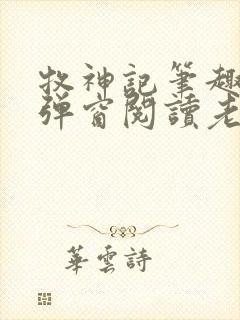 牧神記筆趣
弹窗閱讀老
華雲詩